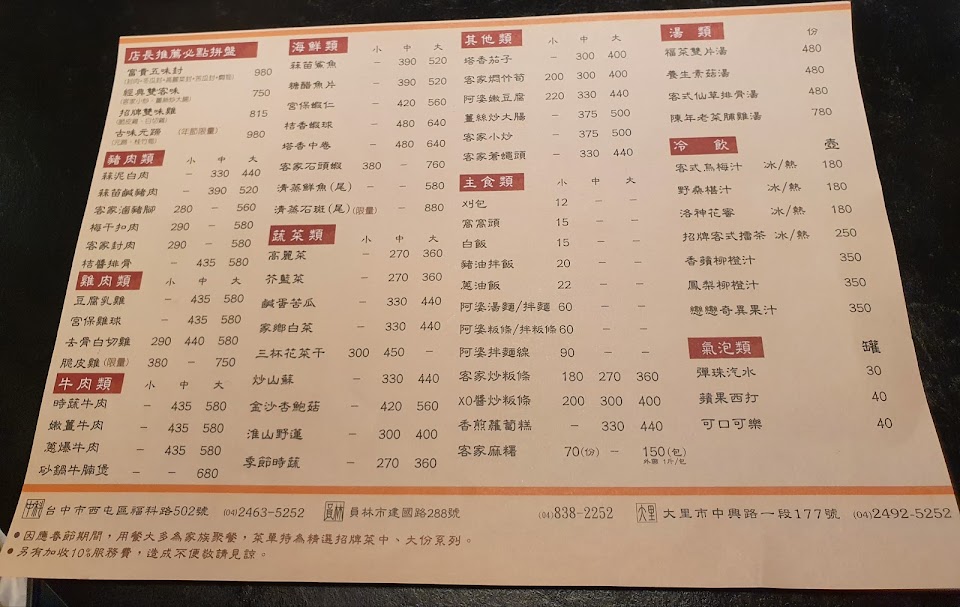 店長推薦必點拼盤
富貴五味封 980
(封肉·冬瓜封·高麗菜封·苦瓜封·筍封)
經典雙客味 750
(客家小炒·薑絲炒大腸)
招牌雙味雞 815
(脆皮雞·白切雞)
古味元蹄 (年節限量) 980
(元蹄·桂竹筍)
豬肉類 小 中 大
蒜泥白肉 – 330 440
蒜苗鹹豬肉 – 390 520
客家滷豬腳 280 – 560
梅干扣肉 290 – 580
客家封肉 290 – 580
桔醬排骨 – 435 580
雞肉類 小 中 大
豆腐乳雞 – 435 580
宮保雞球 – 435 580
去骨白切雞 290 440 580
脆皮雞(限量) 380 – 750
牛肉類 小 中 大
時蔬牛肉 – 435 580
嫩薑牛肉 – 435 580
蔥爆牛肉 – 435 580
砂鍋牛腩煲 – – 680
海鮮類 小 中 大
蒜苗鯊魚 – 390 520
糖醋魚片 – 390 520
宮保蝦仁 – 420 560
桔香蝦球 – 480 640
塔香中卷 – 480 640
客家石頭蝦 380 – 760
清蒸鮮魚(尾) – – 580
清蒸石斑(尾)(限量) – 880
蔬菜類 小 中 大
高麗菜 – 270 360
芥藍菜 – 270 360
鹹蛋苦瓜 – 330 440
家鄉白菜 – 330 440
三杯花菜干 300 450 –
炒山蘇 – 330 440
金沙杏鮑菇 – 420 560
淮山野蓮 – 300 400
季節時蔬 – 270 360
其他類 小 中 大
塔香茄子 – 300 400
客家燜竹筍 200 300 400
阿婆嫩豆腐 220 330 440
薑絲炒大腸 – 375 500
客家小炒 – 375 500
客家蒼蠅頭 – 330 440
主食類 小 中 大
刈包 12 – –
窩窩頭 15 – –
白飯 15 – –
豬油拌飯 20 – –
蔥油飯 22 – –
阿婆湯麵/拌麵 60 – –
阿婆粄條/拌粄條 60 – –
阿婆拌麵線 90 – –
客家炒粄條 180 270 360
XO醬炒粄條 200 300 400
香煎蘿蔔糕 – 330 440
客家麻糬 70(份) – 150(包)
外帶1斤/包
湯類 份
福菜雙片湯 480
養生素菇湯 480
客式仙草排骨湯 480
陳年老菜脯雞湯 780
冷飲 壺
客式烏梅汁 冰/熱 180
野桑椹汁 冰/熱 180
洛神花蜜 冰/熱 180
招牌客式擂茶 冰/熱 250
香蘋柳橙汁 350
鳳梨柳橙汁 350
戀戀奇異果汁 350
氣泡類 罐
彈珠汽水 30
蘋果西打 40
可口可樂 40
中科 台中市西屯區福科路502號 (04)2463-5252
員林 員林市建國路288號 (04)838-2252
大里 大里市中興路一段177號 (04)2492-5252
●因應春節期間，用餐大多為家族聚餐，菜單特為精選招牌菜中、大份系列。
●另有加收10%服務費，造成不便敬請見諒。